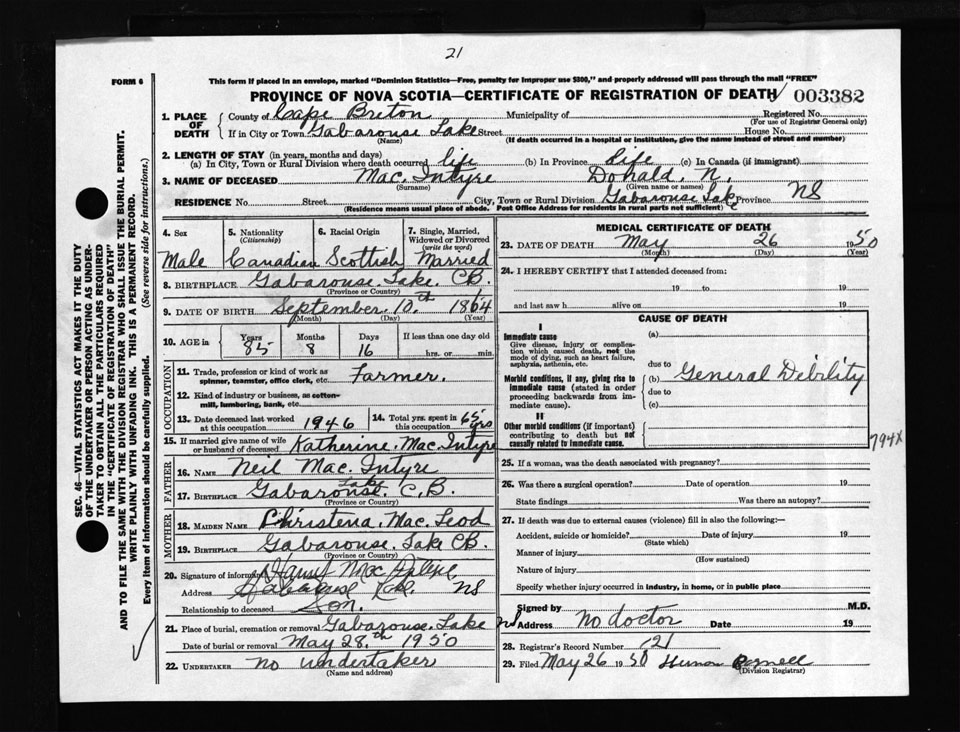 21
FORM 6
This form if placed in an envelope, marked "Dominion Statistics—Free, penalty for improper use $300," and properly addressed will pass through the mail "FREE"
PROVINCE OF NOVA SCOTIA—CERTIFICATE OF REGISTRATION OF DEATH 003382
1. PLACE OF DEATH
County of Cape Breton Municipality of Registered No.
(For use of Registrar General only)
If in City or Town Gabarouse Lake Street House No.
(Name) (If death occurred in a hospital or institution, give the name instead of street and number)
2. LENGTH OF STAY (in years, months and days)
(a) In City, Town or Rural Division where death occurred life (b) In Province Life (c) In Canada (if immigrant)
3. NAME OF DECEASED Mac. Intyre Donald. N.
(Surname) (Given name or names)
RESIDENCE No. Street City, Town or Rural Division Gabarouse Lake Province NS
(Residence means usual place of abode. Post Office Address for residents in rural parts not sufficient)
4. Sex 5. Nationality (Citizenship) 6. Racial Origin 7. Single, Married, Widowed or Divorced (write the word)
Male Canadian Scottish Married
8. BIRTHPLACE Gabarouse. Lake. CB.
(Province or Country)
9. DATE OF BIRTH September. 10.th 1864
(Month) (Day) (Year)
10. AGE in Years Months Days If less than one day old
85 8 16 hrs. or min.
OCCUPATION
11. Trade, profession or kind of work as spinner, teamster, office clerk, etc. Farmer.
12. Kind of industry or business, as cotton-mill, lumbering, bank, etc.
13. Date deceased last worked at this occupation 1946 14. Total yrs. spent in this occupation 65 yrs
15. If married give name of wife or husband of deceased Katherine. Mac. Intyre
FATHER
16. NAME Neil Mac. Intyre
17. BIRTHPLACE Gabarouse. Lake C.B.
(Province or Country)
MOTHER
18. MAIDEN NAME Christena. Mac. Leod
19. BIRTHPLACE Gabarouse. Lake CB.
(Province or Country)
20. Signature of informant
Address NS
Relationship to deceased Son.
21. Place of burial, cremation or removal Gabarouse. Lake NS
Date of burial or removal May 28.th 1950
22. UNDERTAKER no undertaker
(Name and address)
MEDICAL CERTIFICATE OF DEATH
23. DATE OF DEATH May 26 1950
(Month) (Day) (Year)
24. I HEREBY CERTIFY that I attended deceased from:
19 to 19
and last saw h alive on 19
CAUSE OF DEATH
I
Immediate cause (a)
Give disease, injury or complication which caused death, not the mode of dying, such as heart failure, asphyxia, asthenia, etc.
due to
Morbid conditions, if any, giving rise to immediate cause (stated in order proceeding backwards from immediate cause). (b) General Debility
due to
(c)
II
Other morbid conditions (if important) contributing to death but not causally related to immediate cause.
794X
25. If a woman, was the death associated with pregnancy?
26. Was there a surgical operation? Date of operation 19
State findings Was there an autopsy?
27. If death was due to external causes (violence) fill in also the following:—
Accident, suicide or homicide? Date of injury 19
(State which)
Manner of injury
(How sustained)
Nature of injury
Specify whether injury occurred in industry, in home, or in public place
Signed by M.D.
Address no doctor Date 19
28. Registrar's Record Number 21
29. Filed May 26 1950
(Division Registrar)
SEC. 46—VITAL STATISTICS ACT MAKES IT THE DUTY
OF THE UNDERTAKER OR PERSON ACTING AS UNDER-
TAKER TO OBTAIN ALL THE PARTICULARS REQUIRED
IN THE "CERTIFICATE OF REGISTRATION OF DEATH"
AND TO FILE THE SAME WITH THE DIVISION REGISTRAR WHO SHALL ISSUE THE BURIAL PERMIT.
WRITE PLAINLY WITH UNFADING INK. THIS IS A PERMANENT RECORD.
Every item of information should be carefully supplied. (See reverse side for instructions.)